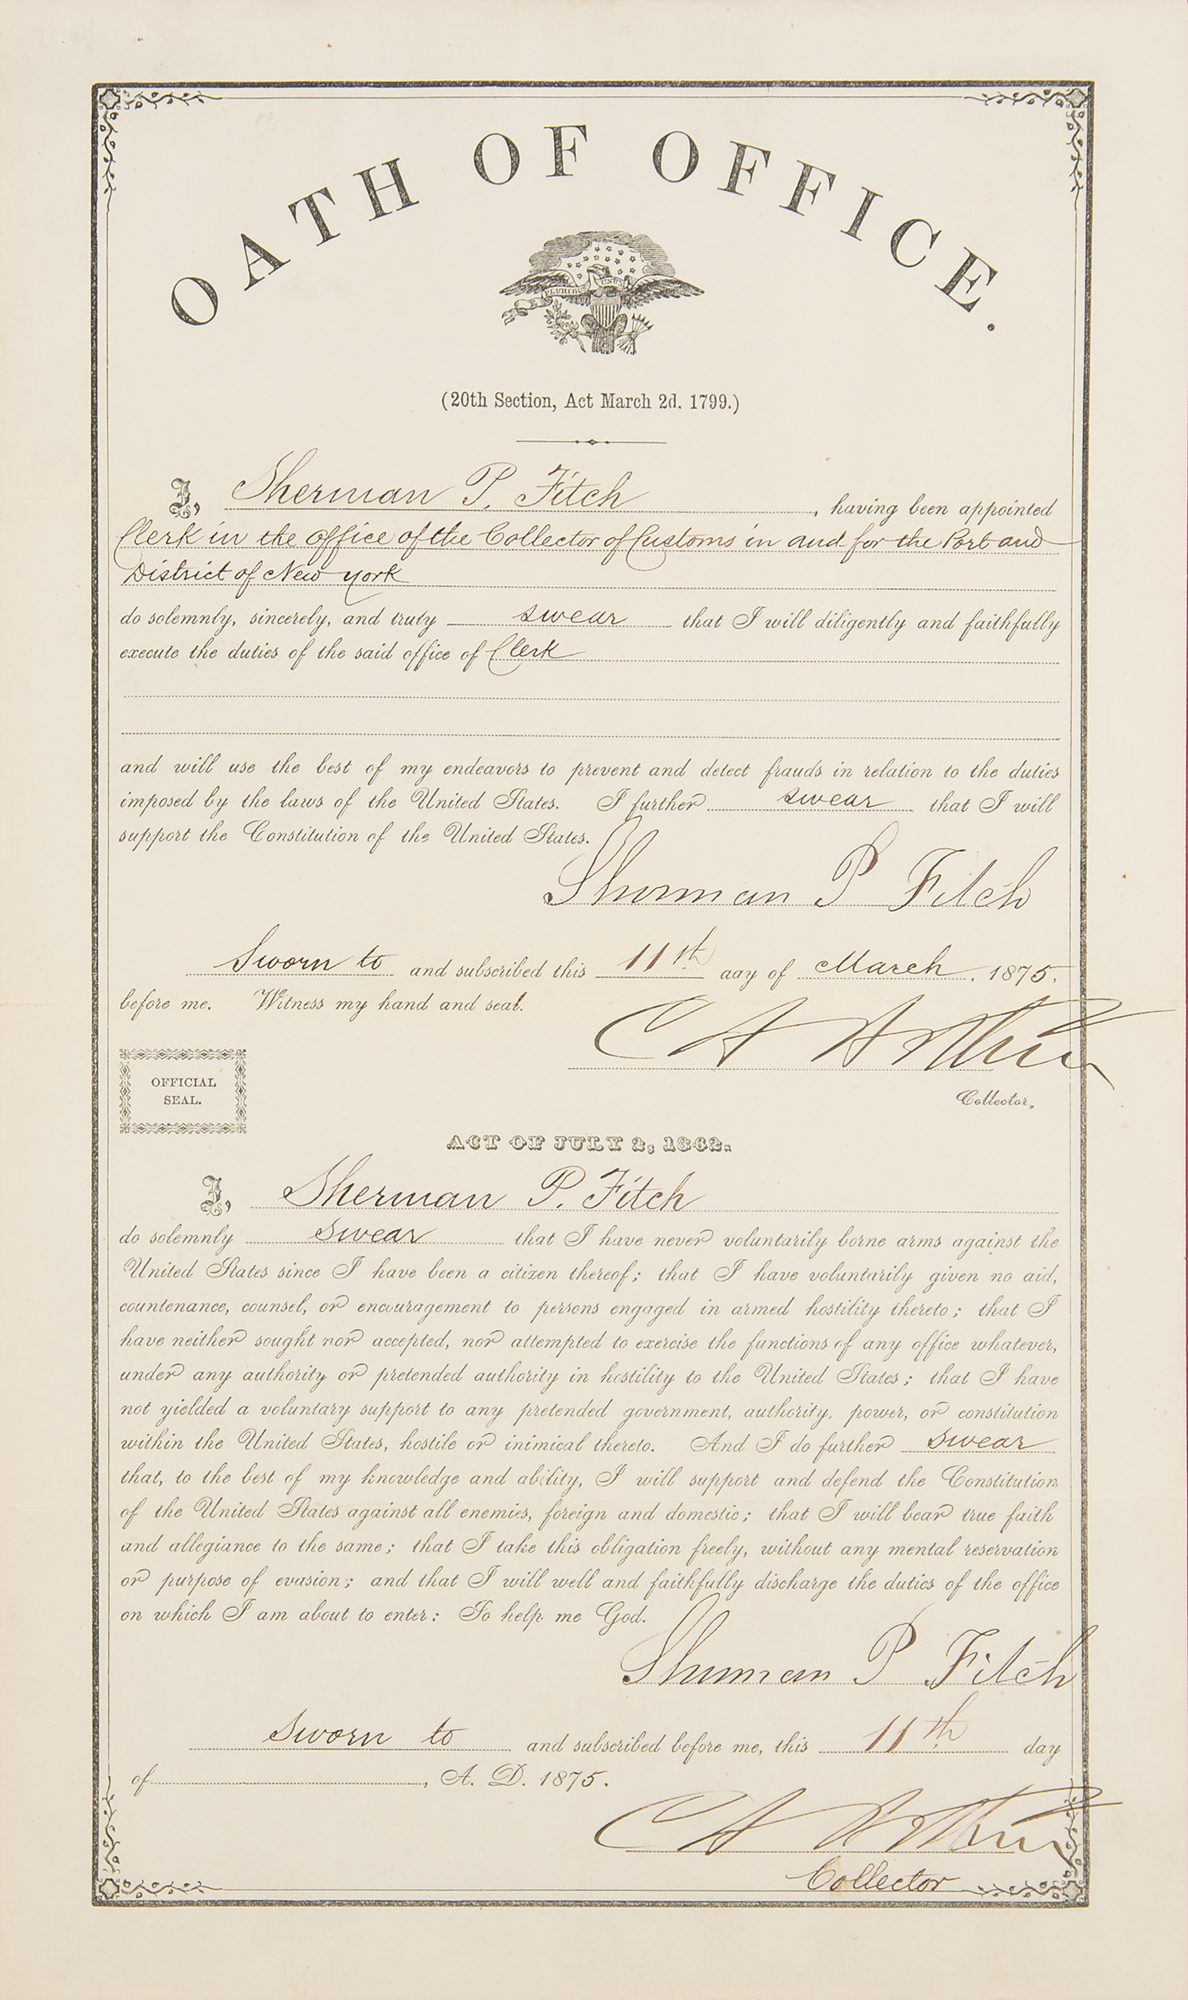 OATH OF OFFICE.
PLURIBUS UNUM
(20th Section, Act March 2d. 1799.)
I, Sherman P. Fitch, having been appointed
Clerk in the office of the Collector of Customs in and for the Port and
District of New York
do solemnly, sincerely, and truly swear that I will diligently and faithfully
execute the duties of the said office of Clerk
and will use the best of my endeavors to prevent and detect frauds in relation to the duties
imposed by the laws of the United States. I further swear that I will
support the Constitution of the United States.
Sherman P Fitch
Sworn to and subscribed this 11th day of March, 1875.
before me. Witness my hand and seal.
C A Arthur
Collector,
OFFICIAL
SEAL.
ACT OF JULY 2, 1862.
I, Sherman P. Fitch
do solemnly swear that I have never voluntarily borne arms against the
United States since I have been a citizen thereof; that I have voluntarily given no aid,
countenance, counsel, or encouragement to persons engaged in armed hostility thereto; that I
have neither sought nor accepted, nor attempted to exercise the functions of any office whatever,
under any authority or pretended authority in hostility to the United States; that I have
not yielded a voluntary support to any pretended government, authority, power, or constitution
within the United States, hostile or inimical thereto. And I do further swear
that, to the best of my knowledge and ability, I will support and defend the Constitution
of the United States against all enemies, foreign and domestic; that I will bear true faith
and allegiance to the same; that I take this obligation freely, without any mental reservation
or purpose of evasion; and that I will well and faithfully discharge the duties of the office
on which I am about to enter: So help me God.
Sherman P Fitch
Sworn to and subscribed before me, this 11th day
of , A. D. 1875.
C A Arthur
Collector